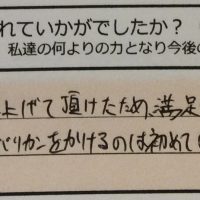 れていかがでしたか？
私達の何よりの力となり今後の
上げて頂けたため、満足
バリカンをかけるのは初めて